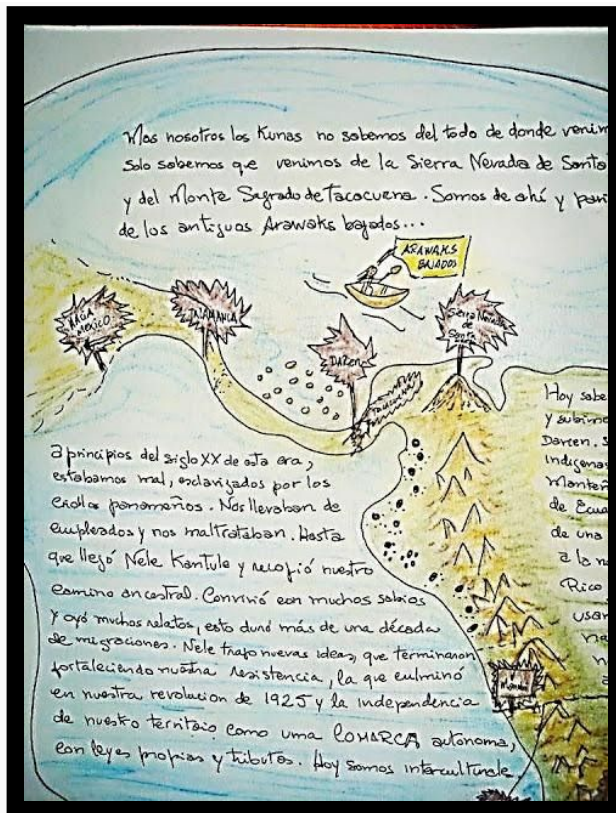 Mas nosotros los Kunas no sabemos del todo de donde venim
Solo sabemos que venimos de la Sierra Nevada de Santa
y del Monte Sagrado de Tacarcuna. Somos de ahí y pari
de los antiguos Arawaks bajados...
ARAWAKS
BAJADOS
MEXICO
TALAMANCA
DARIEN
Sierra Nevada
de
Santa
Hoy sabe
y subimo
Darien. S
Indígenas
Manteñ
de Ecua
de una
a la n
Rico
usar
a principios del siglo XX de esta era,
estabamos mal, esclavizados por los
criollos panameños. Nos llevaban de
empleados y nos maltrataban. Hasta
que llegó Nele Kantule y recogió nuestro
camino ancestral. Convivió con muchos sabios
y oyó muchos relatos, esto duró más de una década
de migraciones. Nele trajo nuevas ideas, que terminaron
fortaleciendo nuestra resistencia, la que culminó
en nuestra revolucion de 1925 y la independencia
de nuestro territorio como uma COMARCA autonoma,
con leyes propias y tributos. Hoy somos interculturale